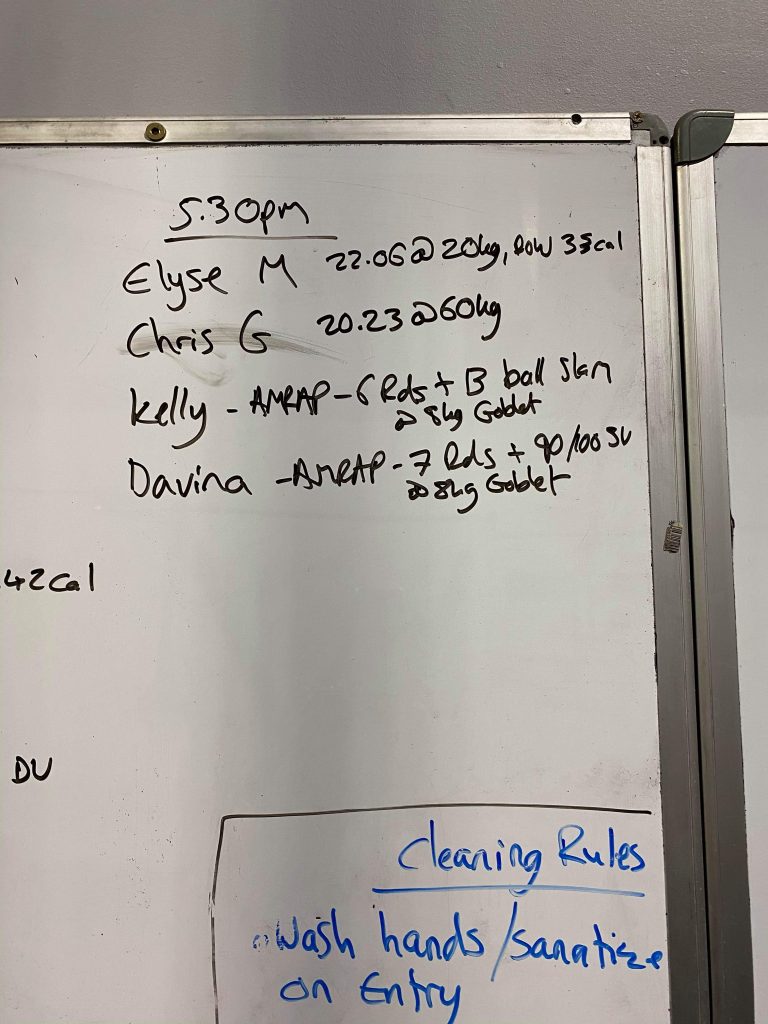 5.30pm
Elyse M 22.06 @ 20kg, Row 35cal
Chris G 20.23 @ 60kg
Kelly - AMRAP - 6 Rds + B ball slam
@ 8kg Goblet
Davina - AMRAP - 7 Rds + 90/100 SU
@ 8kg Goblet
42 Cal
DU
Cleaning Rules
Wash hands / sanatize
on Entry